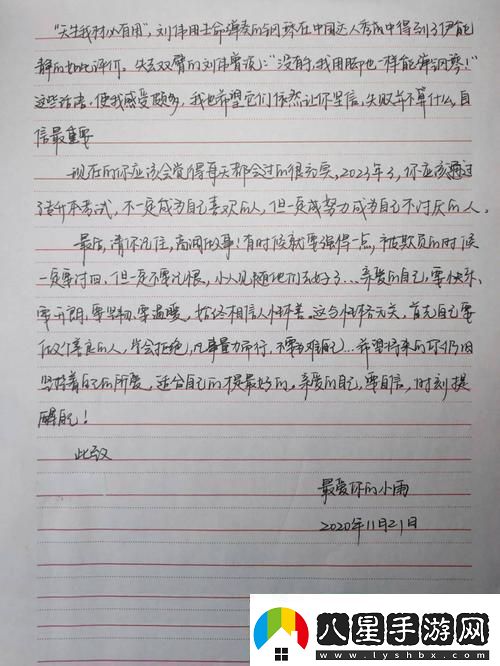 "天生我材必有用", 刘伟用生命弹奏的钢琴在中国达人秀中得到了伊能
静的如此评价。失去双臂的刘伟曾说:"没有手, 我用脚也一样能弹钢琴!"
这些话语, 使我感受颇多, 我也希望它们依然让你坚信, 失败并不算什么, 自
信最重要
现在的你应该会觉得每天都会过的很充实, 2023年了, 你应该通过
专升本考试, 不一定成为自己喜欢的人, 但一定成努力成为自己不讨厌的人。
最后, 请你记住, 有时候就要强得一点, 被欺负的时候
一定要讨回, 但一定不要记恨, 小人见随他们去好了…亲爱的自己, 要快乐、
要开朗、要坚韧、要温暖, 始终相信人性本善。这与性格无关。首先自己要
做个善良的人, 学会拒绝, 凡事量力而行, 不要为难自己…希望将来的你仍旧
坚持着自己的所爱, 适合自己的才是最好的。亲爱的自己, 要自信, 时刻提
醒自己!
此致
最爱你的小雨
2020年11月21日
八星手游网
www.lyshbx.com